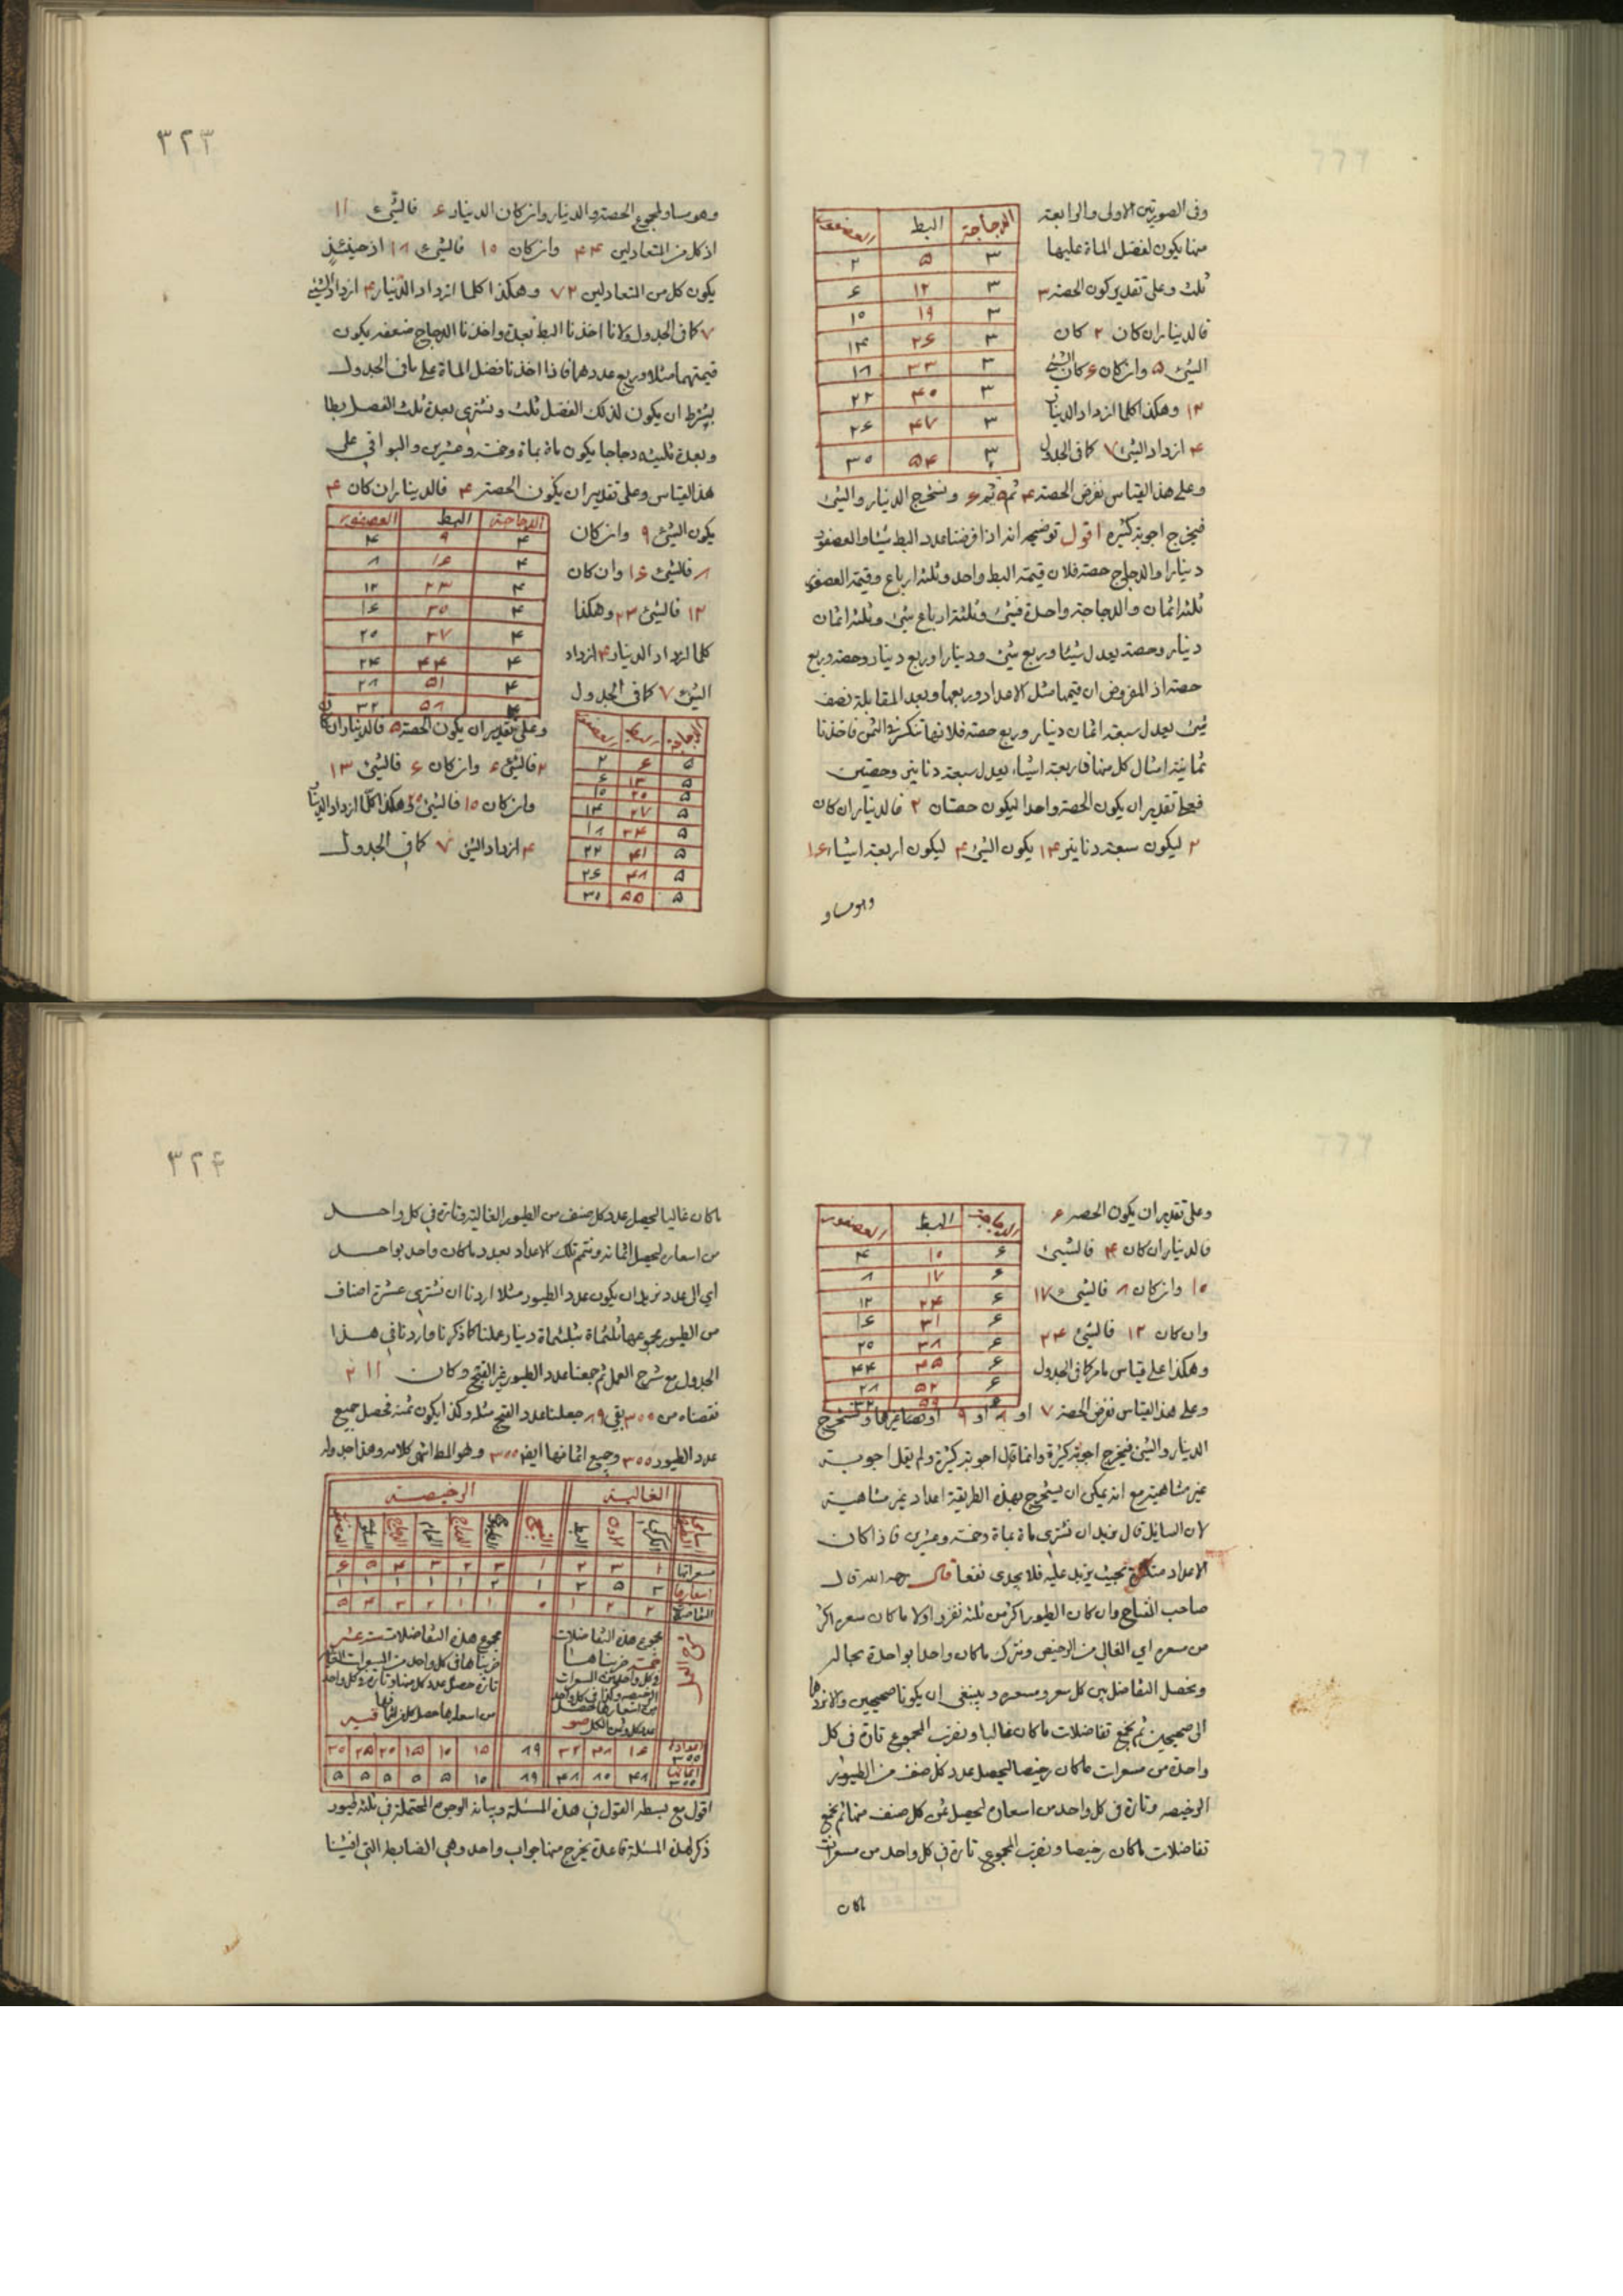 وفي الصورتين الاولى والرابعة
منها يكون لفضل الماة عليها
ثلث وعلى تقدير كون الحصة ٣
فالدينار ان كان ٢ كان
الشئ ۵ وان كان ۶ كان الشئ
١٢ وهكذا كلما ازداد الدينار
۴ ازداد الشئ ٧ كما في الجدول
الدجاجة البط العصفور
٣ ۵ ٢
٣ ١٢ ۶
٣ ١٩ ١٥
٣ ٢۶ ١۴
٣ ٣٣ ١٨
٣ ۴٥ ٢٢
٣ ۴٧ ٢۶
٣ ۵۴ ٣٥
وعلى هذا القياس نفرض الحصة ۴ ثم ۵ ثم ۶ ونستخرج الدينار والشئ
فيخرج اجوبة كثيرة اقول توضيحه انه اذا فرضنا عدد البط شيئا والعصفور
دينارا والدجاج حصة فلان قيمة البط واحد وثلثة ارباع وقيمة العصفور
ثلثة اثمان والدجاجة واحدة فشئ وثلثة ارباع شئ وثلثة اثمان
دينار وحصة يعدل شيئا وربع شئ ودينارا وربع دينار وحصة وربع
حصة اذ المفروض ان قيمتها مثل الاعداد وربعها وبعد المقابلة نصف
شئ يعدل سبعة اثمان دينار وربع حصة فلانها تنكسر في الثمن فاخذنا
ثمانية امثال كل منهما فاربعة اشياء يعدل سبعة دنانير وحصتين
فعلى تقدير ان يكون الحصة واحدا ليكون حصتان ٢ فالدينار ان كان
٢ ليكون سبعة دنانير ١۴ يكون الشئ ۴ ليكون اربعة اشياء ١۶
وهو مساو
٣٢٣
وهو مساو لمجموع الحصة والدينار وان كان الدينار ۶ فالشئ ١١
اذ كل من المتعادلين ۴۴ وان كان ١٥ فالشئ ١٨ اذ حينئذ
يكون كل من المتعادلين ٧٢ وهكذا كلما ازداد الدينار ۴ ازداد الشئ
٧ كما في الجدول ولانا اخذنا البط بعدة واخذنا الدجاج ضعفه يكون
قيمتهما مثلا وربع عددهما فاذا اخذنا فضل الماة على ما في الجدول
بشرط ان يكون لذلك الفضل ثلث ونشتري بعدة ثلث الفضل بطا
وبعدة ثلثيه دجاجا يكون ماة بماة وخمسة وعشرين والبواقي على
هذا القياس وعلى تقدير ان يكون الحصة ۴ فالدينار ان كان ۴
يكون الشئ ٩ وان كان
٨ فالشئ ١۶ وان كان
١٢ فالشئ ٢٣ وهكذا
كلما ازداد الدينار ۴ ازداد
الشئ ٧ كما في الجدول
الدجاجة البط العصفور
۴ ٩ ۴
۴ ١۶ ٨
۴ ٢٣ ١٢
۴ ٣٥ ١۶
۴ ٣٧ ٢٥
۴ ۴۴ ٢۴
۴ ۵١ ٢٨
۴ ۵٨ ٣٢
وعلى تقدير ان يكون الحصة ۵ فالدينار ان كان
٢ فالشئ ۶ وان كان ۶ فالشئ ١٣
وان كان ١٥ فالشئ ٢٥ وهكذا كلما ازداد الدينار
۴ ازداد الشئ ٧ كما في الجدول
الدجاجة البط العصفور
۵ ۶ ٢
۵ ١٣ ۶
۵ ٢٥ ١٥
۵ ٢٧ ١۴
۵ ٣۴ ١٨
۵ ۴١ ٢٢
۵ ۴٨ ٢۶
۵ ۵۵ ٣٥
وعلى تقدير ان يكون الحصة ۶
فالدينار ان كان ۴ فالشئ
١٥ وان كان ٨ فالشئ ١٧
وان كان ١٢ فالشئ ٢۴
وهكذا على قياس ما مر كما في الجدول
الدجاجة البط العصفور
۶ ١٥ ۴
۶ ١٧ ٨
۶ ٢۴ ١٢
۶ ٣١ ١۶
۶ ٣٨ ٢٥
۶ ۴۵ ۴۴
۶ ۵٢ ٢٨
۶ ۵٩ ٣٢
وعلى هذا القياس نفرض الحصة ٧ او ٨ او ٩ او ونستخرج
الدينار والشئ فيخرج اجوبة كثيرة وانما قال اجوبة كثيرة ولم يقل اجوبة
غير متناهية مع انه يمكن ان يستخرج بهذه الطريقة اعداد غير متناهية
لان السايل قال نريد ان نشتري ماة بماة وخمسة وعشرين فاذا كان
الاعداد متكثرة بحيث يزيد عليه فلا يجدى نفعا قال رحمه الله قال
صاحب المفتاح وان كان الطيور اكثر من ثلثة نفرز اولا ما كان سعره اكثر
من مسعره اي الغالي من الرخيص ونترك ما كان واحدا بواحدة بحاله
ونحصل التفاضل بين كل سعر ومسعره وينبغي ان يكونا صحيحين والا نردهما
الى صحيحين ثم نجمع تفاضلات ما كان غاليا ونضرب المجموع تارة في كل
واحدة من مسعرات ما كان رخيصا ليحصل عدد كل صنف من الطيور
الرخيصة وتارة في كل واحد من اسعاره ليحصل ثمن كل صنف منها ثم نجمع
تفاضلات ما كان رخيصا ونضرب المجموع تارة في كل واحد من مسعرات
ما كان
٣٢۴
ما كان غاليا ليحصل عدد كل صنف من الطيور الغالية وتارة في كل واحد
من اسعاره ليحصل اثمانه ونتمم تلك الاعداد بعدد ما كان واحد بواحد
اي الى عدد نريد ان يكون عدد الطيور مثلا اردنا ان نشتري عشرة اصناف
من الطيور مجموعها ثلثماة بثلثماة دينار عملنا كما ذكرنا واردنا في هذا
الجدول مع شرح العمل ثم جمعنا عدد الطيور غير القبج وكان ٢١١
نقصناه من ٣٥٥ بقي ٨٩ جعلنا عدد القبج مثله وكذا يكون ثمنه فحصل جميع
عدد الطيور ٣٥٥ وجميع اثمانها ايضا ٣٥٥ وهو المط انتهى كلامه وهذا جدوله
الغالية الرخيصة
اسامي الكركي الاوز البط القبج الحمام السلوى العصفور
مسعراتها ١ ٣ ٢ ١ ٣ ٢ ٣ ۴ ۵ ۶
اسعارها ٣ ۵ ٣ ١ ٢ ١ ١ ١ ١ ١
التفاضلات ٢ ٢ ١ ٥ ١ ١ ٢ ٣ ۴ ۵
شرح العمل
مجموع هذه التفاضلات
خمسة ضربناها
في كل واحد من المسعرات
مجموع هذه التفاضلات ستة عشر
ضربناها في كل واحد من المسعرات
تارة حصل عدد كل منها وتارة في كل واحد
من اسعارها حصل كل
اعدادها ٣٥٥ ١۶ ۴٨ ٣٢ ٨٩ ١۵ ١٥ ١۵ ٢٥ ٢۵ ٣٥
اثمانها ٣٥٥ ۴٨ ٨٥ ۴٨ ٨٩ ١٥ ۵ ۵ ۵ ۵ ۵
اقول مع بسطه القول في هذه المسئلة وبيانه الوجوه المحتملة في ثلثة طيور
ذكر لهذه المسئلة قاعدة يخرج منها جواب واحد وهي الضابطة التي